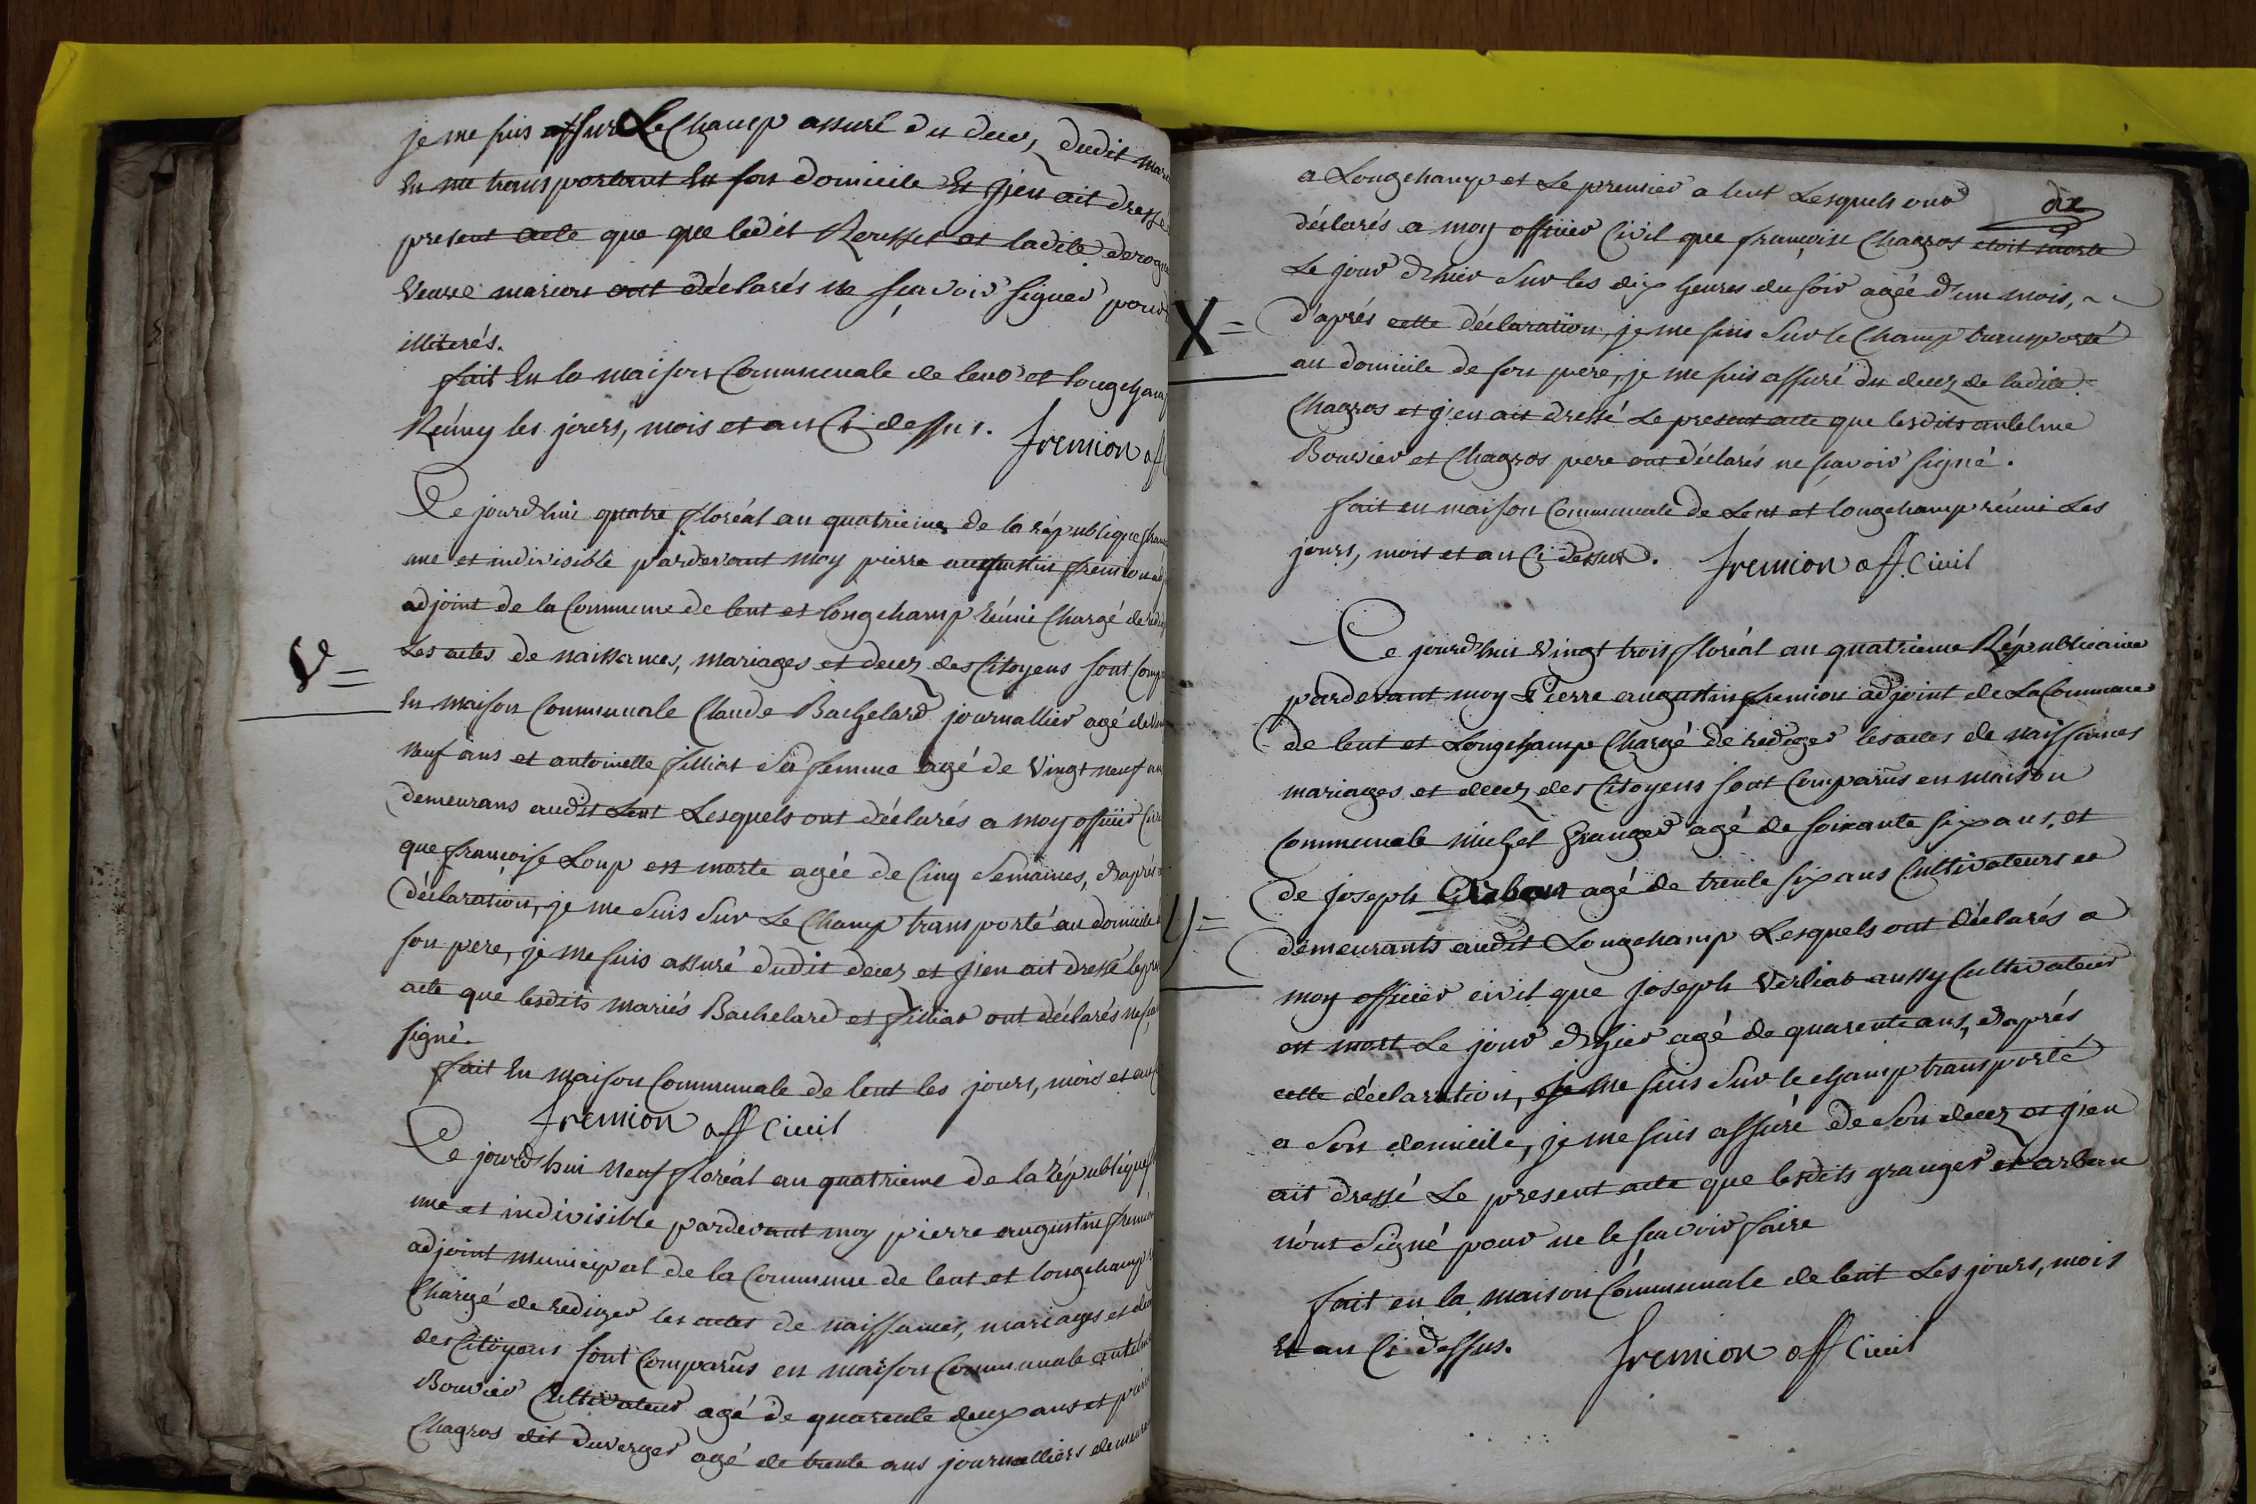 je me suis assuré Le Champ assuré du decez dudit mari
En me transportant En son domicile Et j'en ait dressé
present acte que que ledit Rousset et ladite derogue
veuve marions ont déclarés ne sçavoir signer pour
illiterés.
fait En la maison Communale de lent et longchamp
Réuny les jours, mois et an Ci dessus. fremion off
Ce jourd'hui quatre floréal an quatrieme de la république fran
une et indivisible pardevant moy pierre augustin fremion adj
adjoint de la Commune de lent et longchamp réuni Chargé de redig
Les actes de naissances, mariages et decez des Citoyens sont Comp
En maison Communale Claude Bachelard journallier agé de vin
V=
neuf ans et antoinette filliat Sa femme agé de vingt neuf an
demeurans audit Lent Lesquels ont déclarés a moy officier Civi
que françoise Loup est morte agée de Cinq Semaines, d'aprés
déclaration, je me Suis Sur Le Champ transporté au domicile
son pere, je me suis assuré dudit decez et j'en ait dressé le pre
acte que lesdits mariés Bachelard et filliat ont déclarés ne sça
signé.
fait En maison Communale de lent les jours, mois et an
fremion off Civil
Ce jourd'hui neuf floréal an quatrieme de la république
une et indivisible pardevant moy pierre augustin fremion
adjoint municipal de la Commune de lent et longchamp
Chargé de rediger les actes de naissances, mariages et dec
des Citoyens sont Comparûs en maison Communale antelme
Bouvier Cultivateur agé de quarente deux ans et
Chagros dit duverger agé de trente ans journalliers demeur
dix
a Longchamp et Le premier a lent Lesquels ont
déclarés a moy officier Civil que françoise Chagros etoit morte
Le jour d'hier Sur les dix heures du soir agée d'un mois, ~ ~
X=
d'aprés cette déclaration, je me suis Sur le Champ transporté
au domicile de son pere, je me suis assuré du decez de ladite
Chagros et j'en ait dressé Le present acte que lesdits antelme
Bouvier et Chagros pere ont déclarés ne sçavoir signé.
fait en maison Communale de Lent et longchamp réuni Les
jours, mois et an Ci dessus. fremion off Civil
Ce jourd'hui vingt trois floréal an quatrieme Républicaine
pardevant moy Pierre augustin fremion adjoint de La Commune
de lent et Longchamp Chargé de rediger les actes de naissances
mariages et decez des Citoyens sont Comparûs en maison
Communale michel Granger agé de soixante six ans, et
de joseph Arban agé de trente six ans Cultivateurs et
y=
demeurants audit Longchamp Lesquels ont déclarés a
moy officier civil que joseph Verliat aussy Cultivateur
est mort Le jour d'hier agé de quarente ans, d'aprés
cette déclaration, je me suis Sur le champ transporté
a Son domicile, je me suis assuré de Son decez et j'en
ait dressé Le present acte que lesdits granger et arban
n'ont Signé pour ne le sçavoir faire
fait en la maison Communale de lent Les jours, mois
Et an Ci dessus. fremion off Civil